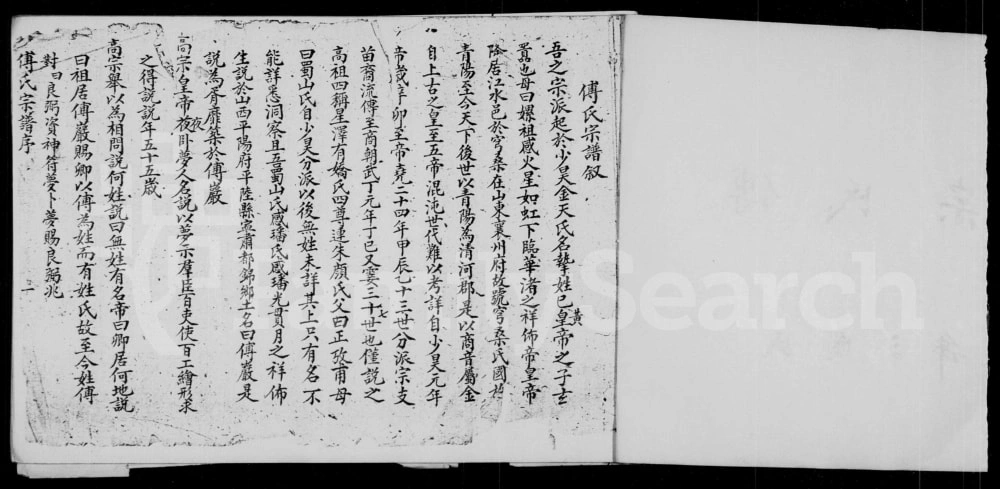 傅氏宗譜叙
吾之宗派起於少昊金天氏名摯姓巳黃皇帝之子玄
囂也母曰嫘祖感火星如虹下臨華渚之祥佈帝皇帝
降居江水邑於窮桑在山東襄州府故號窮桑氏國於
青陽至今天下後世以青陽為清河郡是以商音屬金
自上古之皇至五帝混沌世代難以考詳自少昊元年
帝歲辛卯至帝堯二十四年甲辰七十三世分派宗支
苗裔流傳至商朝武丁元年丁巳又雲三十七世也僅說之
高祖四稱星澤有嬌氏四尊連朱顏氏父曰正攷甫母
曰蜀山氏自少昊分派以後無姓未詳其上只有名不
能詳悉洞察且吾蜀山氏感璠氏感璠光貫月之祥佈
生說於山西平陽府平陸縣寧肅都錦鄉土名曰傅巖是
說為胥靡築於傅巖
高宗皇帝夜卧夢人名說以夢示羣臣百吏使百工繪形求
之得說說年五十五歲
高宗舉以為相問說何姓說曰無姓有名帝曰卿居何地說
曰祖居傅巖賜卿以傅為姓而有姓氏故至今姓傅
對曰良弼資神符夢卜夢賜良弼兆
傅氏宗譜序 二
Search